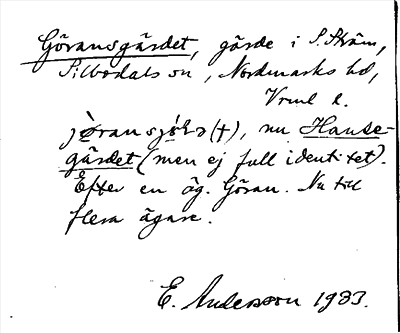 Göransgärdet, gärde i S. Ström,
Silbodals sn, Nordmarks hd,
Vrml l.
(†), nu Hanse-
gärdet (men ej full identitet).
Efter en äg. Göran. Nu till
flera ägare.
E. Andersson 1933.